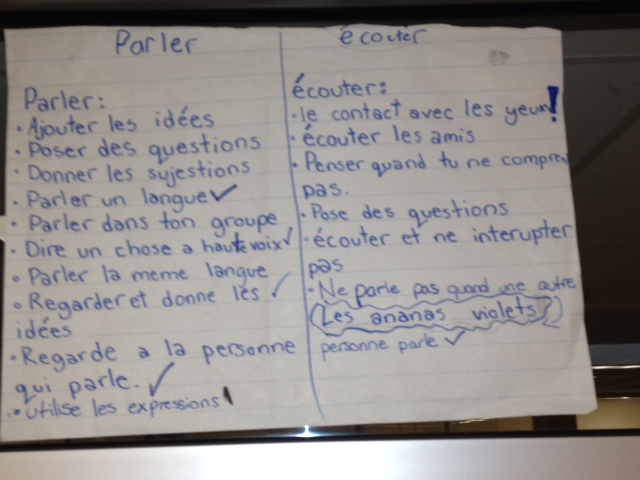 Parler
Parler:
• Ajouter les idées
• Poser des questions
• Donner les sujestions
• Parler un langue ✓
• Parler dans ton groupe
• Dire un chose a haute voix ✓
• Parler la meme langue
• Regarder et donne les ✓
idées
• Regarde a la personne
qui parle. ✓
• Utilise les expressions
écouter
écouter:
• le contact avec les yeux!
• écouter les amis
• Penser quand tu ne
pas.
• Pose des questions
• écouter et ne interupter
pas
• Ne parle pas quand une autre
Les ananas violets
personne parle ✓